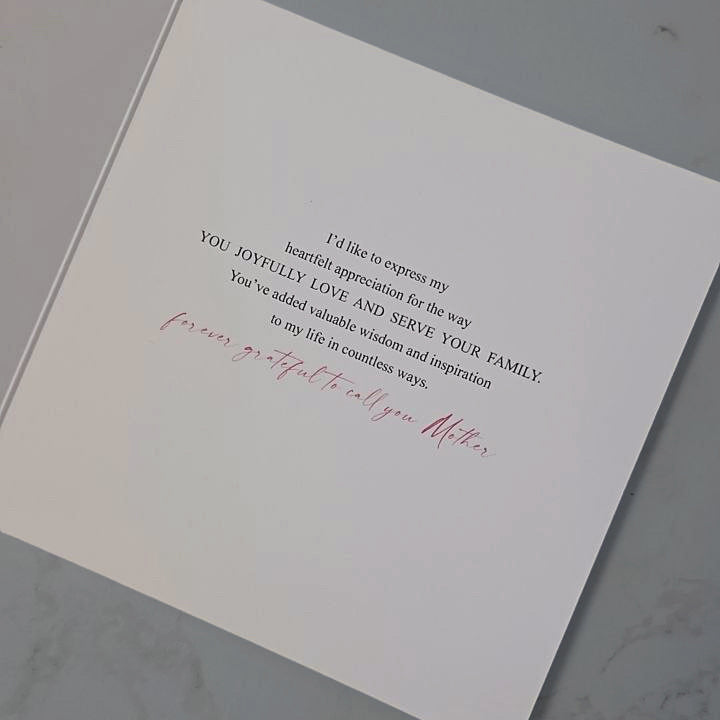 I'd like to express my
heartfelt appreciation for the way
YOU JOYFULLY LOVE AND SERVE YOUR FAMILY.
You've added valuable wisdom and inspiration
to my life in countless ways.
forever grateful to call you Mother